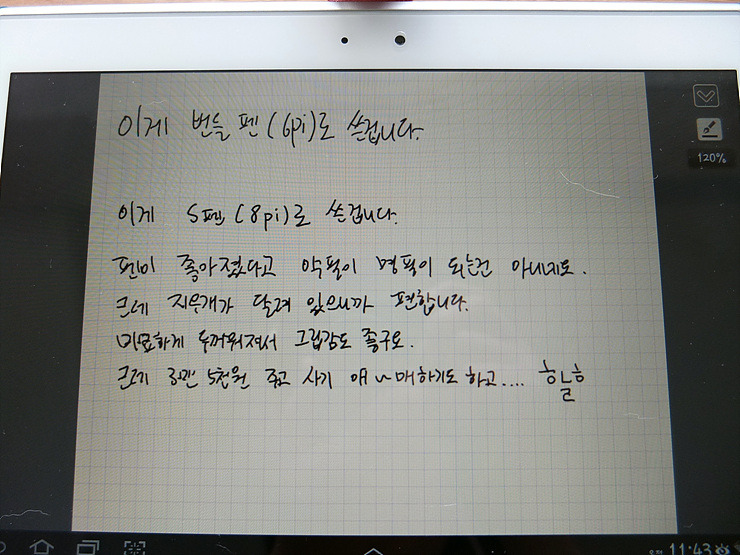 이게 번들 펜(6pi)로 쓴겁니다.
120%
이게 S펜(8pi)로 쓴겁니다.
펜이 좋아졌다고 악필이 명필이 되는건 아니네요.
근데 지우개가 달려 있으니까 편합니다.
미묘하게 두꺼워져서 그립감도 좋구요.
근데 3만 5천원 주고 사기 애~매하기도 하고....
11:43